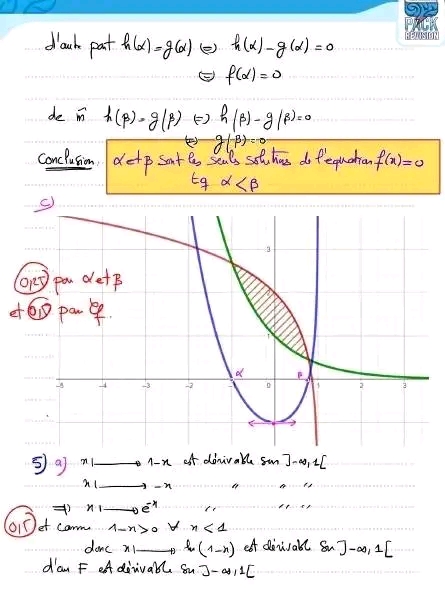 PACK
REVISION
d'autre part h(α)=g(α) ⇔ h(α)-g(α)=0
⇔ f(α)=0
de m̂ h(β)=g(β) ⇔ h(β)-g(β)=0
⇔ g(β)=0
Conclusion α et β sont les seuls solutions de l'equation f(x)=0
tq α<β
c)
3
0,25 pour α et β
et pour φ
1
α
β
-5 -4 -3 -2 -1 0 1 2 3
5) a) x ⟼ 1-x est dérivable sur ]-∞,1[
x ⟼ -x " " "
⇒ x ⟼ e^-x " " "
et comme 1-x>0 ∀ x<1
donc x ⟼ ln(1-x) est dérivable sur ]-∞,1[
d'où F est dérivable sur ]-∞,1[